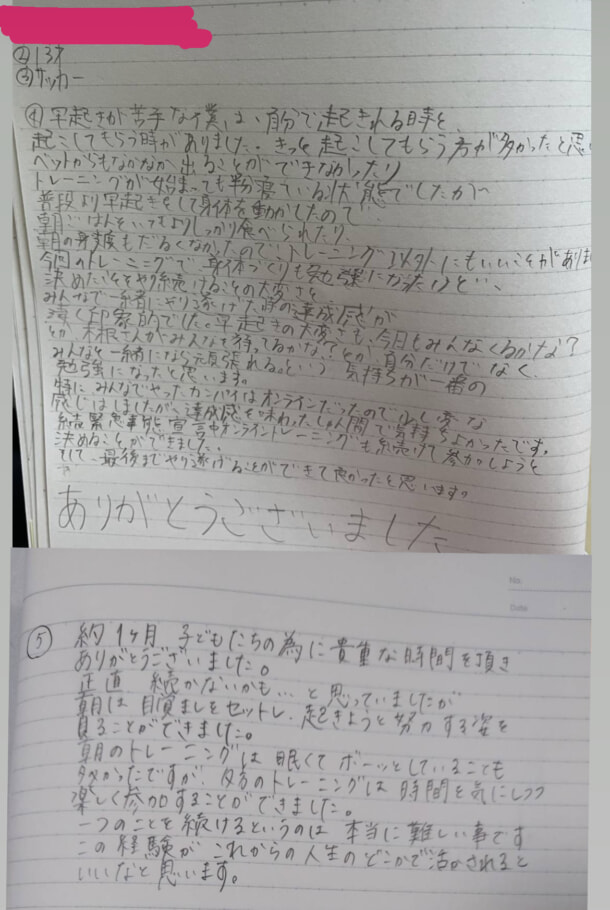 ②13才
③サッカー
④早起きが苦手な僕は、自分で起きれる時と、
起こしてもらう時がありました。きっと起こしてもらう方が多かったと思い
ベットからもなかなか出ることができなかったり
トレーニングが始まっても半分寝ている状態でしたが
普段より早起きをして身体を動かしたので
朝ごはんをいつもよりしっかり食べられたり
朝の身支度もだるくなかったので、トレーニング以外にもいいことがありま
今回のトレーニングで、身体づくりも勉強になったけど…、
決めたことをやり続けることの大変さと
みんなで一緒にやり遂げた時の達成感が
凄く印象的でした。早起きの大変さも、今日もみんなくるかな?
とか木根さんがみんなを待ってるかな?とか自分だけでなく、
みんなと一緒になら頑張れる。という気持ちが一番の
勉強になったと思います。
特にみんなでやったカンパイはオンラインだったので少し変な
感じはしましたが、達成感を味わった人間で気持ちよかったです。
緊急事態宣言中オンライントレーニングも続けて参加しようと
決めることができました。
そして、最後までやり遂げることができて良かったと思います。
ありがとうございました
No.
Date
⑤ 約1ヶ月 子どもたちの為に貴重な時間を頂き
ありがとうございました。
正直 続かないかも…と思っていましたが
朝は目覚ましをセットし、起きようと努力する姿を
見ることができました。
朝のトレーニングは眠くてボーッとしていることも
多かったですが、夕方のトレーニングは時間を気にしつつ
楽しく参加することができました。
一つのことを続けるというのは本当に難しい事です
この経験がこれからの人生のどこかで活かされると
いいなと思います。